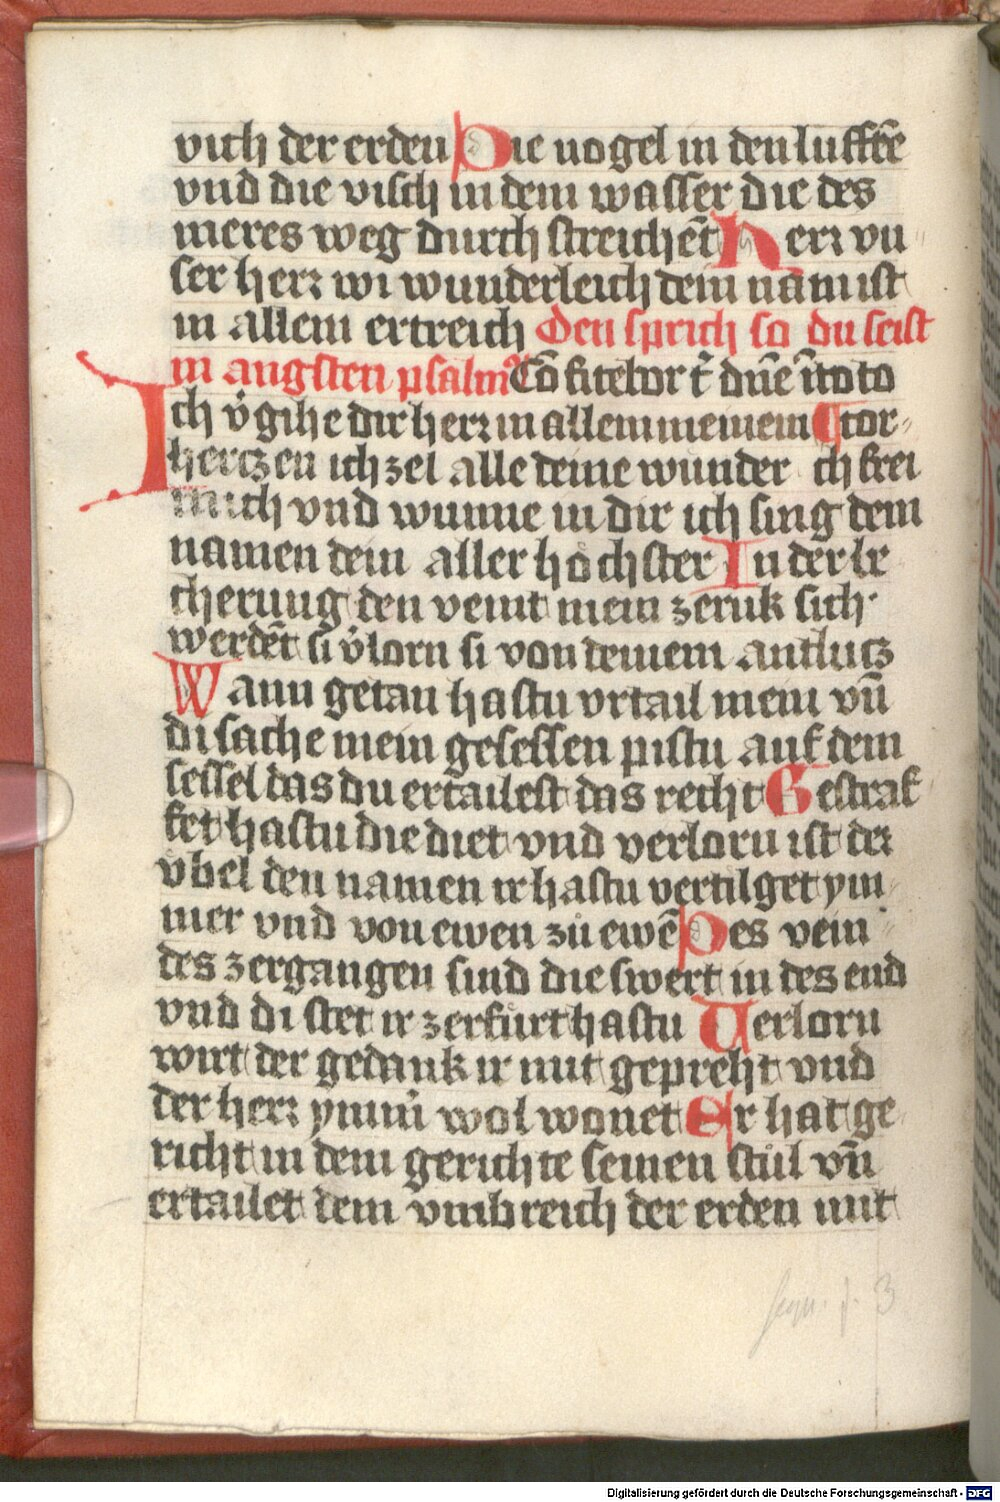 vich der erden Die vogel in den lufftē
vnd die visch in dem wasser die des
meres weg durch streichēt Herr vn
ser herr wi wunderleich dein nam ist
in allem ertreich Den sprich so du seist
in angsten psalmꝰ Cōfitebor t̄ dn̄e ī toto
Ich v̄gihe dir herr in allem meinem cor
hertzen ich zel alle deine wunder ich frei
mich vnd wunne in dir ich sing dem
namen dein aller hochster In der be
cherung den veint mein zeruk sich
werdēt si v̄lorn si von deinem antlutz
Wann getan hastu vrtail mein vn̄
di sache mein gesessen pistu auf dem
sessel das du ertailest das recht Gestraf
fet hastu die diet vnd verlorn ist der
vbel den namen ir hastu vertilget ym
mer vnd von ewen zů ewē Des vein
des zergangen sind die swert in des end
vnd di stet ir zerfůrt hastu Verlorn
wirt der gedank ir mit gepreht vnd
der herr ymm̄ wol wonet Er hat ge
richt in dem gerichte seinen stůl vn̄
ertailet dem vmbreich der erden mit
Digitalisierung gefördert durch die Deutsche Forschungsgemeinschaft - DFG